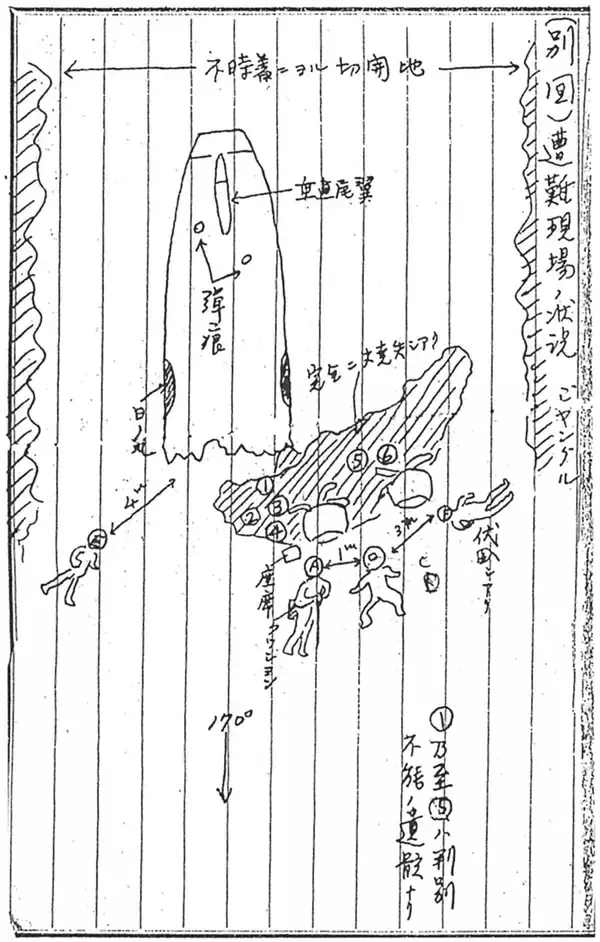 (別図)遭難現場ノ状況
ジヤングル
不時着ニヨル切開地
垂直尾翼
弾痕
日ノ丸
完全ニ焼失シアリ
⑤ ⑥
①
② ③
④
4m
3m
1m
Ⓐ
伏臥シアリ
座席クッション
170°
①乃至⑤ハ判別
不能ノ遺骸ナリ